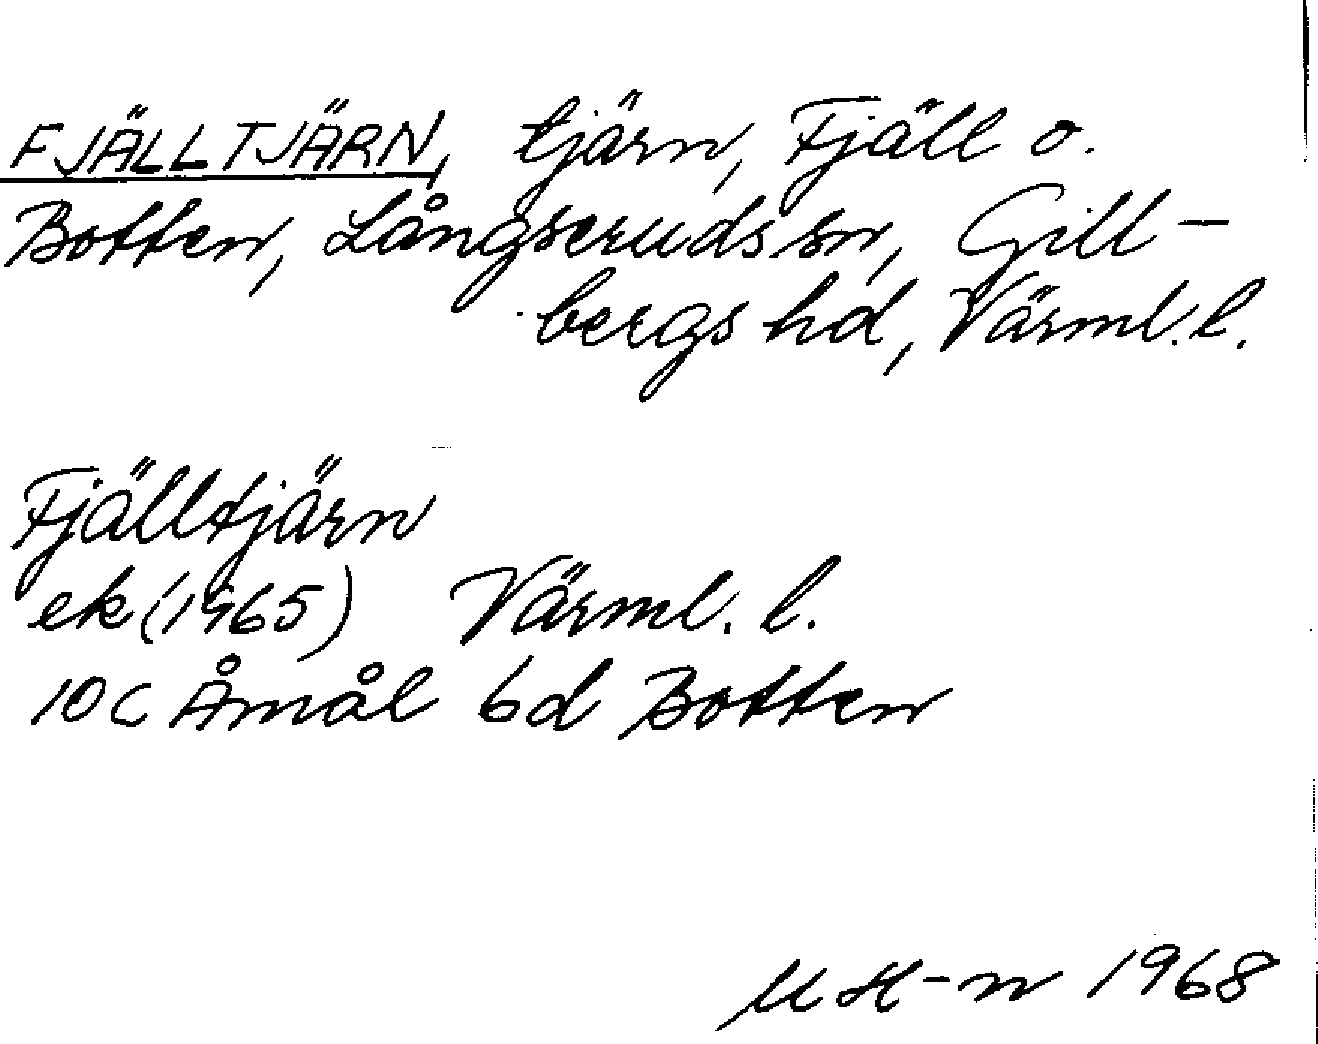 FJÄLLTJÄRN, tjärn, Fjäll o.
Botten, Långseruds sn, Gill-
bergs hd, Värml. l.
Fjälltjärn
ek (1965) Värml. l.
10C Åmål 6d Botten
M H-n 1968